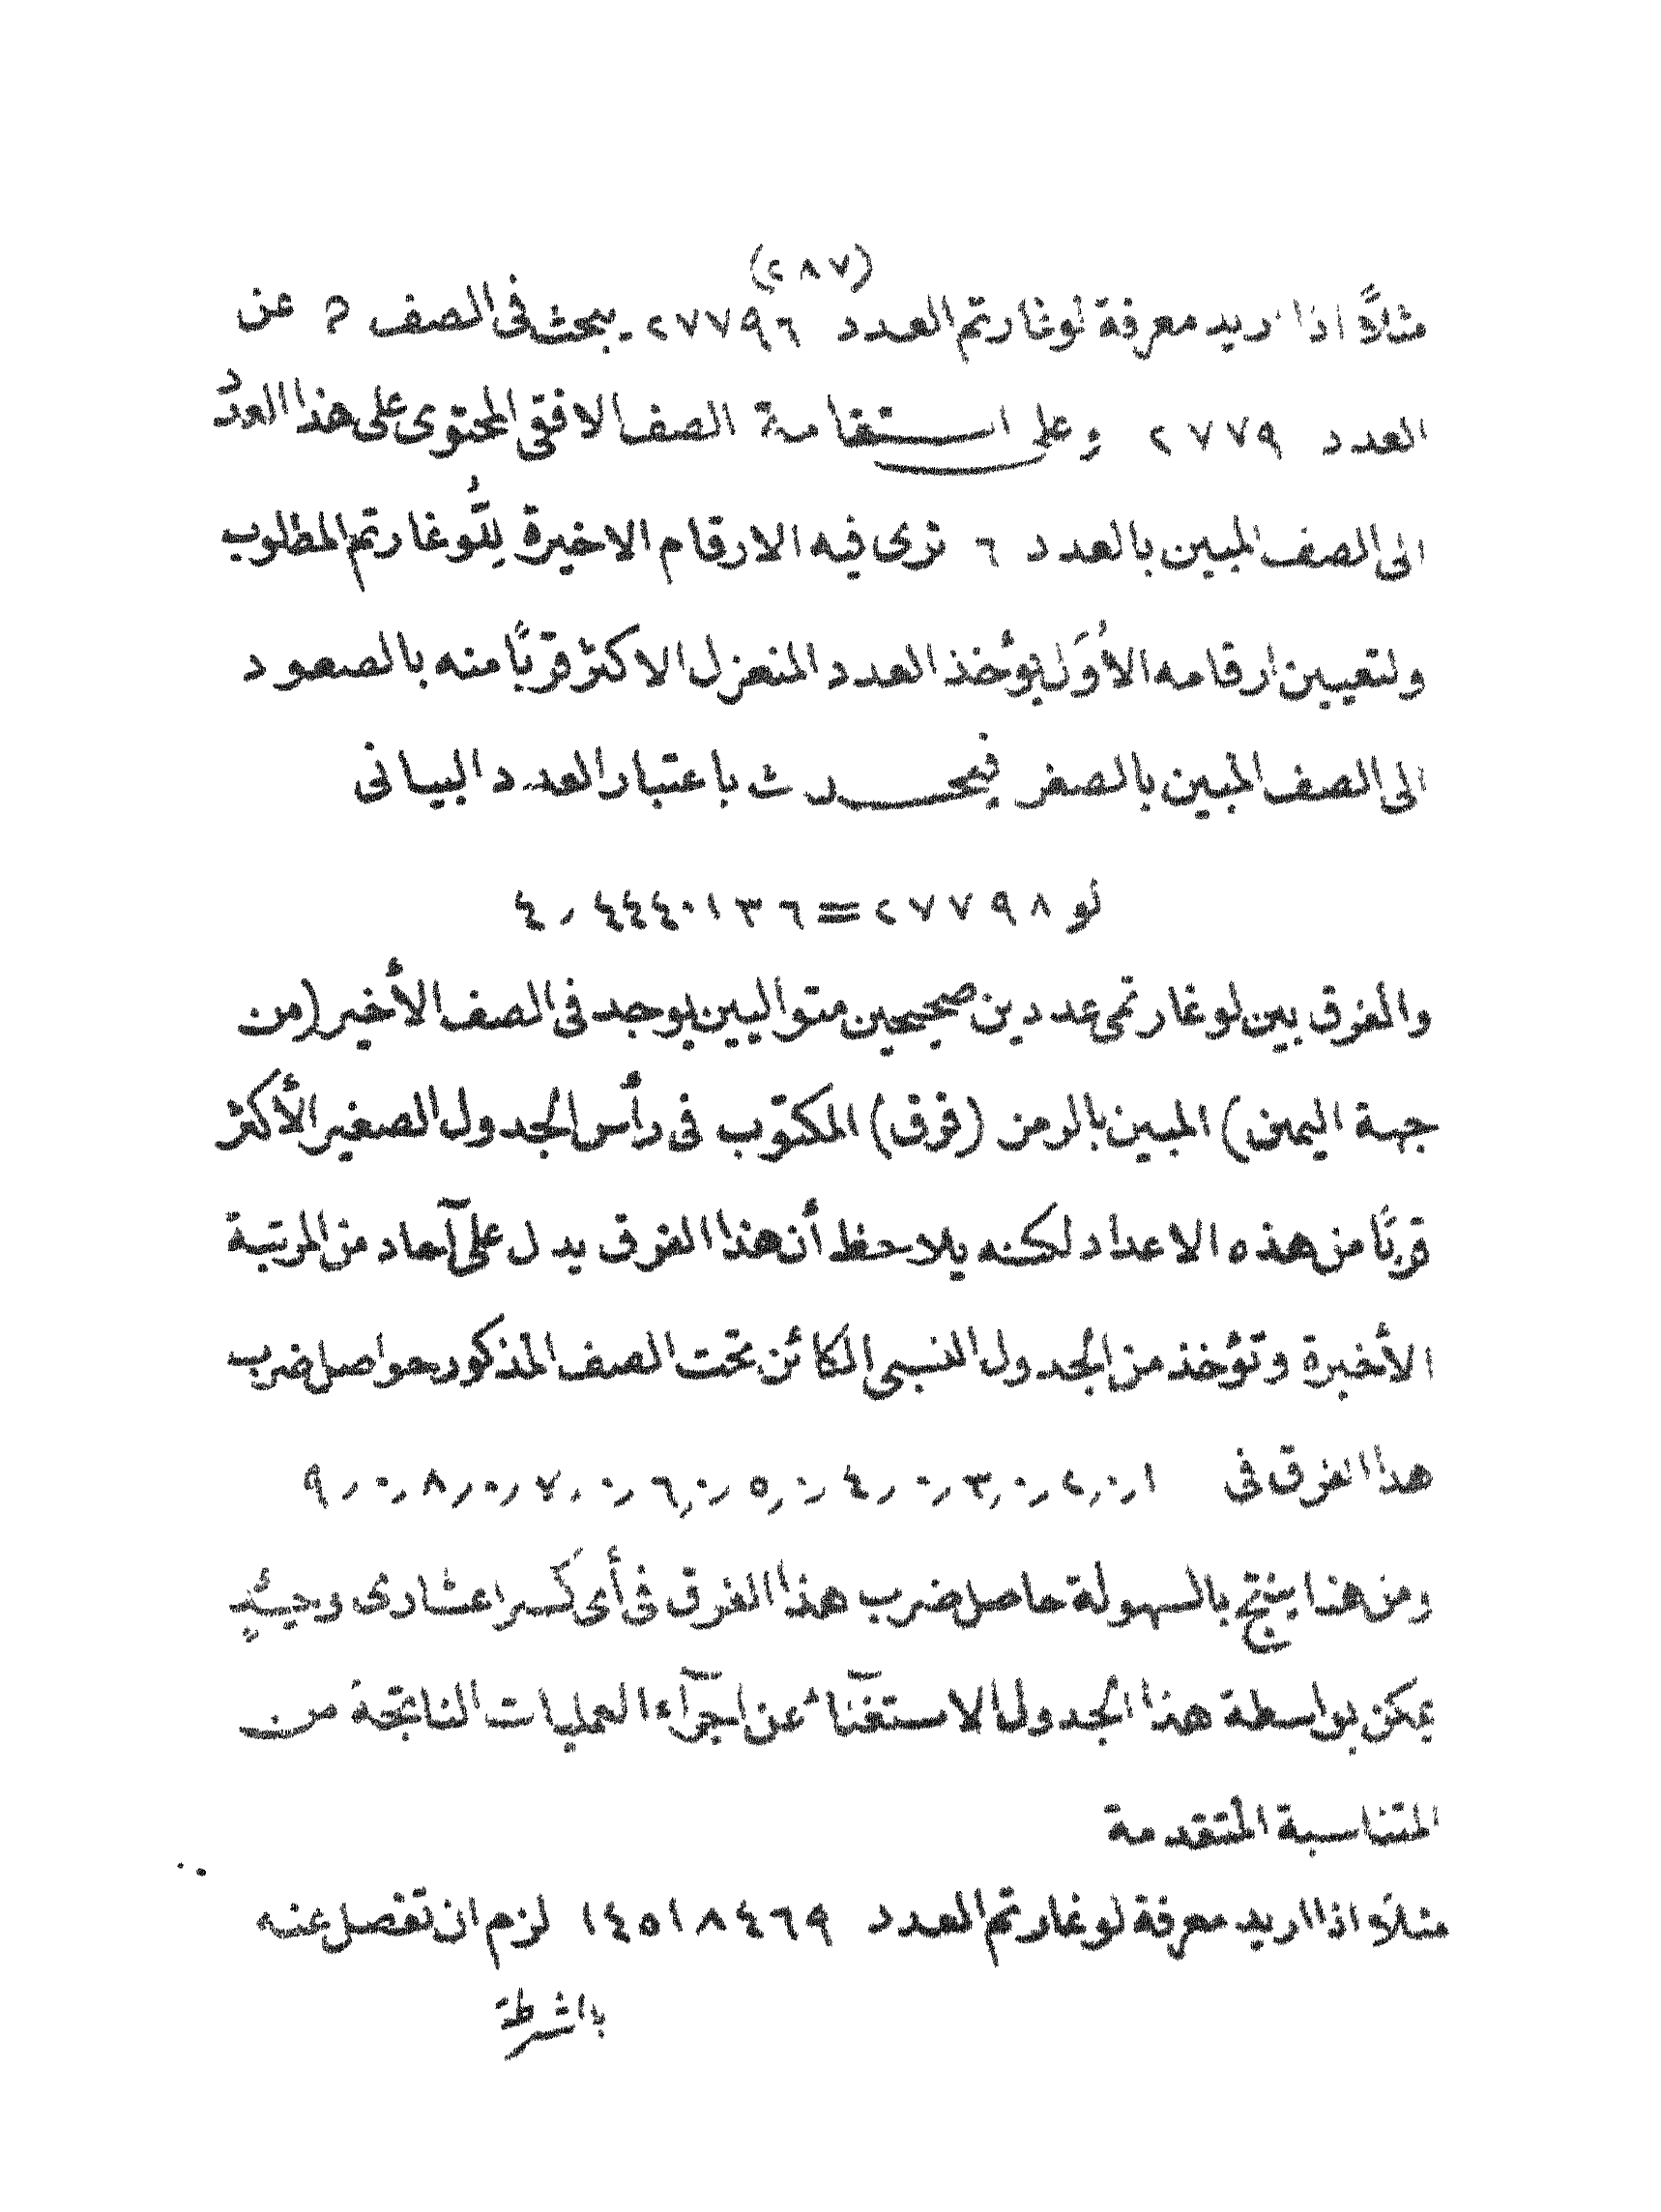 (٢٨٧)
مثلاً اذا اريد معرفة لوغارتم العدد ٢٧٧٩٦ يبحث فى الصف م عن
العدد ٢٧٧٩ وعلى استقامة الصف الافقى المحتوى على هذا العدد
الى الصف المبين بالعدد ٦ نرى فيه الارقام الاخيرة للّوغارتم المطلوب
ولتعيين ارقامه الاُوَل يؤخذ العدد المنعزل الاكثر قربًا منه بالصعود
الى الصف المبين بالصفر فيحدث باعتبار العدد البيانى
لو ٢٧٧٩٨=٤,٤٤٤٠١٣٦
والفرق بين لوغارتمى عددين صحيحين متواليين يوجد فى الصف الأخير (من
جهة اليمين) المبين بالرمز (فرق) المكتوب فى رأس الجدول الصغير الأكثر
قربًا من هذه الاعداد لكنه يلاحظ أن هذا الفرق يدل على آحاد من المرتبة
الأخيرة وتؤخذ من الجدول النسبى الكائن تحت الصف المذكور حواصل ضرب
هذا الفرق فى ٠,١ ٠,٢ ٠,٣ ٠,٤ ٠,٥ ٠,٦ ٠,٧ ٠,٨ ٠,٩
ومن هذا ينتج بالسهولة حاصل ضرب هذا الفرق فى أى كَسر اعشارى وحينئذٍ
يمكن بواسطة هذا الجدول الاستغناء عن اجرآء العمليات الناتجة من
المتناسبة المتقدمة
مثلاً اذا اريد معرفة لوغارتم العدد ١٤٥١٨٤٦٩ لزم ان تفصل عنه
باشرطة